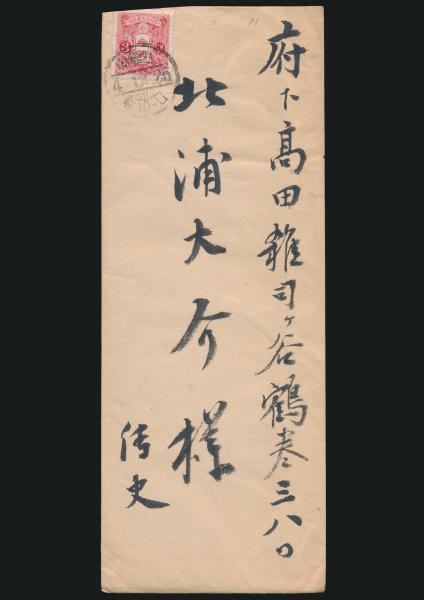 府下高田雑司ヶ谷鶴巻三八〇
北浦大介様
侍史